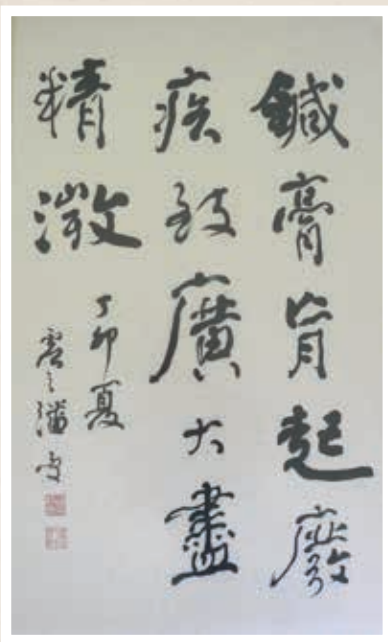 鍼膏肓起廢
疾致廣大盡
精微
丁卯夏
虛之潘受